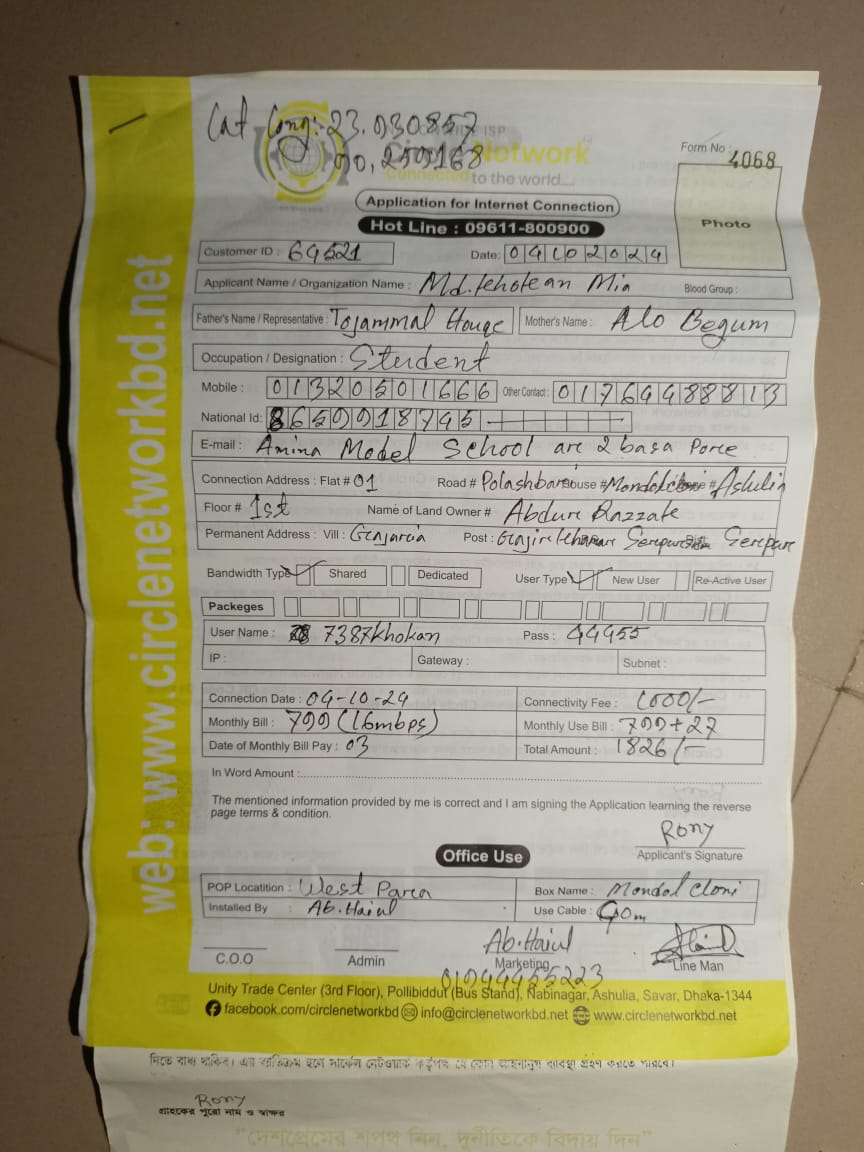 Cat Long: 23.930857
90,259168
Circle Network
Connected to the world...
Form No : 4068
Photo
Application for Internet Connection
Hot Line : 09611-800900
Customer ID : 69521
Date: 04102024
Applicant Name / Organization Name : Md. Khokan Mia
Blood Group :
Father's Name / Representative : Tojammal Houqe
Mother's Name : Alo Begum
Occupation / Designation : Student
Mobile : 01320501666
Other Contact : 01764488813
National Id: 8659918745
E-mail : Amina Model School are 2 basa Pore
Connection Address : Flat # 01 Road # Polashbari House # Mondol # Ashulia
Floor # 1st Name of Land Owner # Abdur Razzak
Permanent Address : Vill : Post :
Bandwidth Type Shared Dedicated User Type New User Re-Active User
Packeges
User Name : 7387khokan Pass : 44955
IP : Gateway : Subnet :
Connection Date : 04-10-24 Connectivity Fee : 1000/-
Monthly Bill : 799 (16mbps) Monthly Use Bill : 799+27
Date of Monthly Bill Pay : 03 Total Amount : 1826/-
In Word Amount :
The mentioned information provided by me is correct and I am signing the Application learning the reverse
page terms & condition.
Rony
Applicant's Signature
Office Use
POP Locatition : West Para Box Name : Mondol Cloni
Installed By : Ab. Haiul Use Cable : 90m
Ab. Haiul
C.O.O Admin Marketing Line Man
Unity Trade Center (3rd Floor), Pollibiddut (Bus Stand), Nabinagar, Ashulia, Savar, Dhaka-1344
facebook.com/circlenetworkbd info@circlenetworkbd.net www.circlenetworkbd.net
web: www.circlenetworkbd.net
দিতে বাধ্য থাকিব। এর ব্যতিক্রম হলে সার্কেল নেটওয়ার্ক কর্তৃপক্ষ যে কোন আইনানুগ ব্যবস্থা গ্রহণ করতে পারবে।
Rony
গ্রাহকের পুরো নাম ও স্বাক্ষর
"দেশপ্রেমের শপথ নিন, দুর্নীতিকে বিদায় দিন"